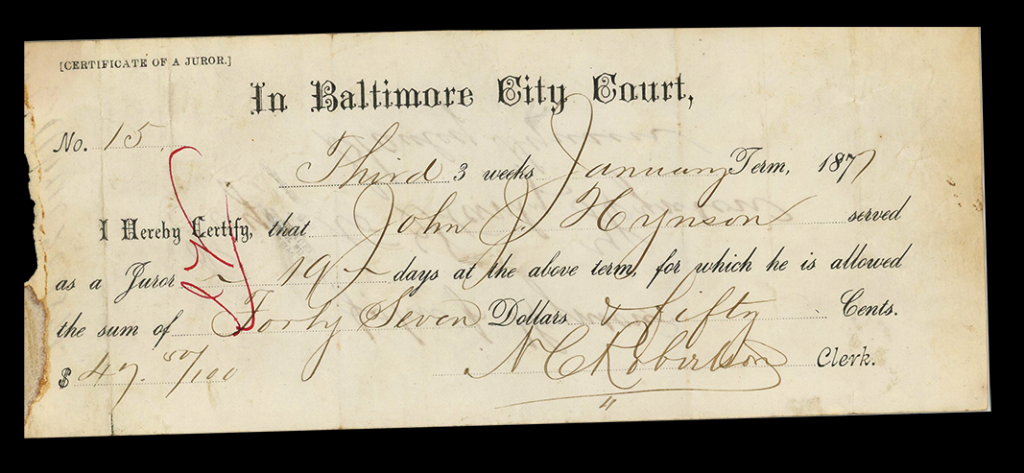 [CERTIFICATE OF A JUROR.]
In Baltimore City Court,
No. 15.
Third 3 weeks January Term, 1877
I Hereby Certify, that John J. Hynson served
as a Juror - 19 - days at the above term, for which he is allowed
the sum of Forty Seven Dollars & Fifty Cents.
$ 47. 50/100 N C Robertson Clerk.